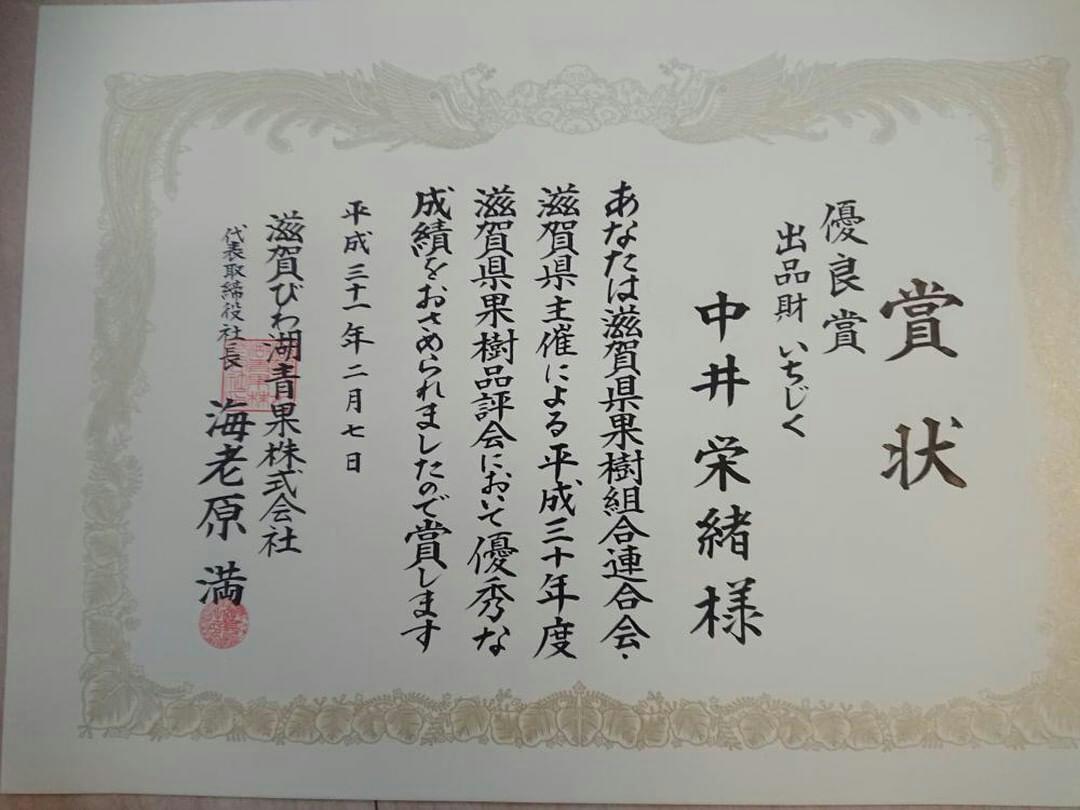 賞状
優良賞
出品財 いちじく
中井栄緒様
あなたは滋賀県果樹組合連合会・
滋賀県主催による平成三十年度
滋賀県果樹品評会において優秀な
成績をおさめられましたので賞します
平成三十一年二月七日
滋賀びわ湖青果株式会社
代表取締役社長 海老原 満